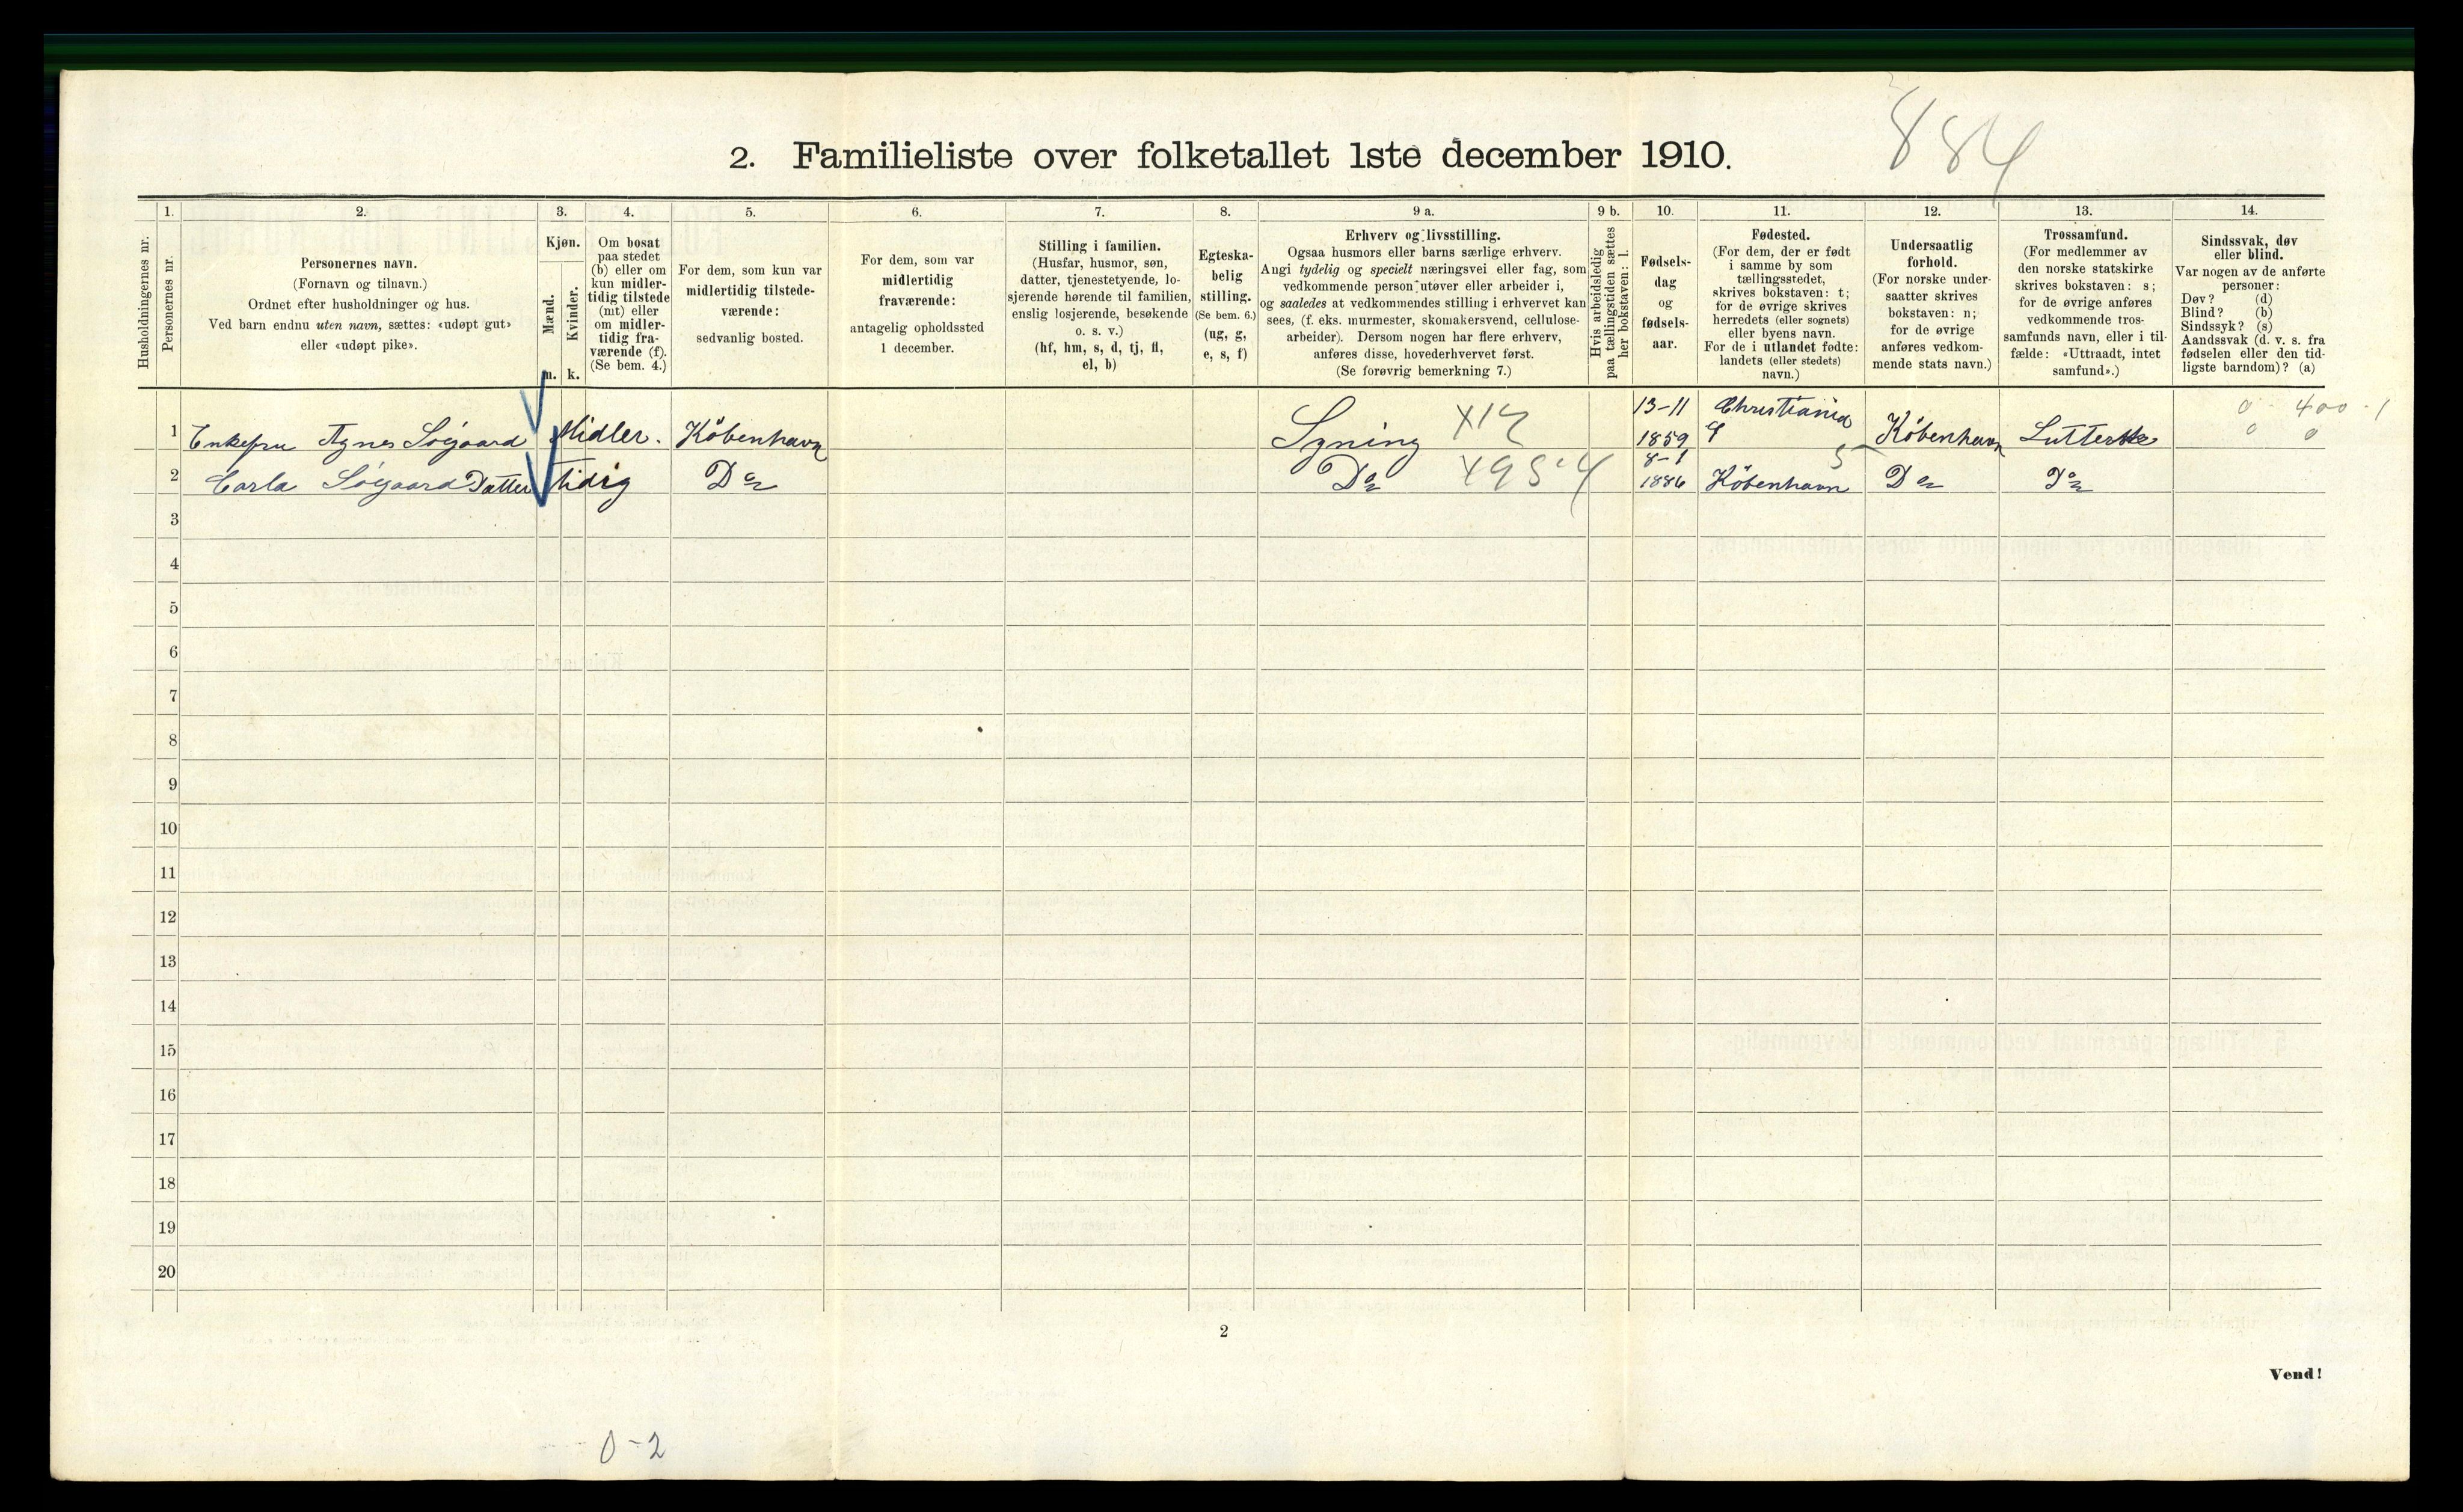 884
2. Familieliste over folketallet 1ste december 1910.
1. 2. 3. 4. 5. 6. 7. 8. 9 a. 9 b. 10. 11. 12. 13. 14.
Husholdningernes nr.
Personernes nr.
Personernes navn.
(Fornavn og tilnavn.)
Ordnet efter husholdninger og hus.
Ved barn endnu uten navn, sættes: «udøpt gut»
eller «udøpt pike».
Kjøn.
Mænd.
Kvinder.
m. k.
Om bosat
paa stedet
(b) eller om
kun midler-
tidig tilstede
(mt) eller
om midler-
tidig fra-
værende (f).
(Se bem. 4.)
For dem, som kun var
midlertidig tilstede-
værende:
sedvanlig bosted.
For dem, som var
midlertidig
fraværende:
antagelig opholdssted
1 december.
Stilling i familien.
(Husfar, husmor, søn,
datter, tjenestetyende, lo-
sjerende hørende til familien,
enslig losjerende, besøkende
o. s. v.)
(hf, hm, s, d, tj, fl,
el, b)
Egteska-
belig
stilling.
(Se bem. 6.)
(ug, g,
e, s, f)
Erhverv og livsstilling.
Ogsaa husmors eller barns særlige erhverv.
Angi tydelig og specielt næringsvei eller fag, som
vedkommende person utøver eller arbeider i,
og saaledes at vedkommendes stilling i erhvervet kan
sees, (f. eks. murmester, skomakersvend, cellulose-
arbeider). Dersom nogen har flere erhverv,
anføres disse, hovederhvervet først.
(Se forøvrig bemerkning 7.)
Hvis arbeidsledig
paa tællingstiden sættes
her bokstaven: l.
Fødsels-
dag
og
fødsels-
aar.
Fødested.
(For dem, der er født
i samme by som
tællingsstedet,
skrives bokstaven: t;
for de øvrige skrives
herredets (eller sognets)
eller byens navn.
For de i utlandet fødte:
landets (eller stedets)
navn.)
Undersaatlig
forhold.
(For norske under-
saatter skrives
bokstaven: n;
for de øvrige
anføres vedkom-
mende stats navn.)
Trossamfund.
(For medlemmer av
den norske statskirke
skrives bokstaven: s;
for de øvrige anføres
vedkommende tros-
samfunds navn, eller i til-
fælde: «Uttraadt, intet
samfund».)
Sindssvak, døv
eller blind.
Var nogen av de anførte
personer:
Døv? (d)
Blind? (b)
Sindssyk? (s)
Aandssvak (d. v. s. fra
fødselen eller den tid-
ligste barndom)? (a)
1 Enkefru Agnes Søgaard Midler. København Syning 13-11 1859 Christiania København 0 400 - 1 0 0
2 Carla Søgaard Datter tidig Do Do 8-1 1886 København Do Do
3
4
5
6
7
8
9
10
11
12
13
14
15
16
17
18
19
20
2
Vend!
0-2